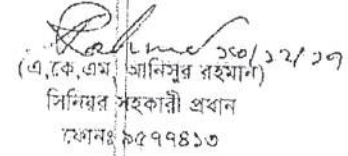 ১০/১২/১৭
(এ,কে,এম, আনিসুর রহমান)
সিনিয়র সহকারী প্রধান
ফোনঃ ৯৫৭৭৪১৩